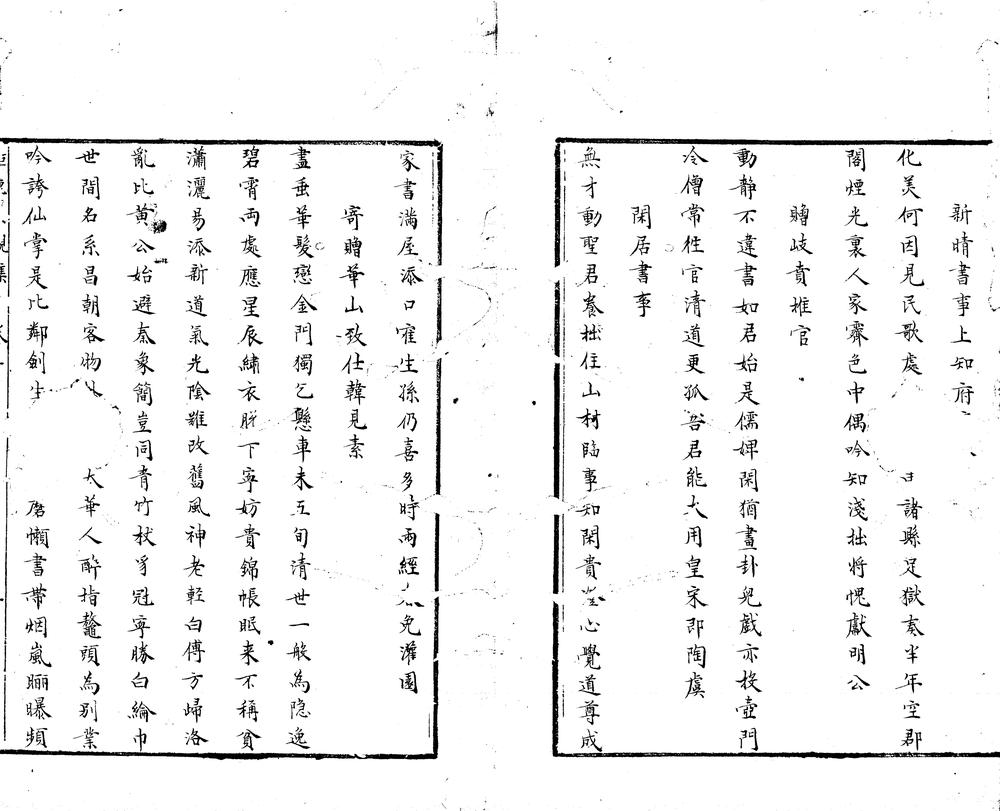 新晴書事上知府
化美何因見民歌處
日諸縣足獄奏半年空郡
閣煙光裏人家霽色中偶吟知淺拙將愧獻明公
贈岐賁推官
動靜不違書如君始是儒婢閑猶畫卦兒戲亦投壺門
冷僧常徃官清道更孤吾君能大用皇宋即陶虞
閑居書事
無才動聖君養拙住山村臨事知閑貴澄心覺道尊成
家書滿屋添口寉生孫仍喜多時雨經免灌園
寄贈華山致仕韓見素
盡垂華髮戀金門獨乞懸車未五旬清世一般為隐逸
碧霄両處應星辰繡衣脫下寧妨貴錦帳眠来不稱貧
瀟灑易添新道氣光陰難改舊風神老輕白傅方歸洛
亂比黃公始避秦象簡豈同青竹杖豸冠寧勝白綸巾
世間名系昌朝客物
大華人醉指鼇頭為別業
吟誇仙掌是比鄰劍生
磨懶書帶烟嵐曬曝頻